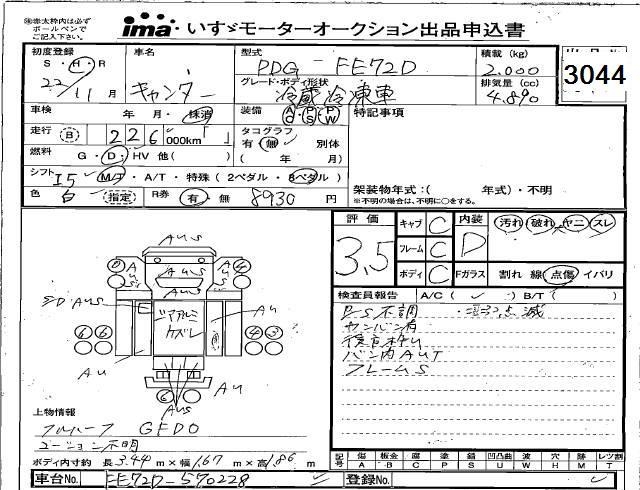 ※赤太枠内は必ず
ボールペンで
ご記入下さい。
ima いすゞモーターオークション出品申込書
初度登録 S・H・R 22/11月
車名 キャンター
型式 PDG-FE72D
積載 (kg) 2.000
グレード・ボディ形状 冷蔵冷凍車
排気量 (cc) 4.890
3044
車検 年 月・抹消
装備 AC PS PW
特記事項
走行 B 226 000km
タコグラフ 有 無 別体 ( 年 月)
燃料 G・D・HV 他( )
シフト I5 MT・A/T・特殊(2ペダル・3ペダル)
架装物年式:( 年式)・不明
※不明の場合は、不明に○をする。
色 白 (指定) R券 有・無 8930 円
評価 3.5
キャブ C
フレーム C
ボディ C
内装 D
汚れ 破れ ヤニ スレ
Fガラス 割れ 線 点傷 イバリ
検査員報告 A/C( ✓ ) B/T( )
P-S不調
カンバン有
バン内AUT
フレームS
AUS
AUS
AU
AU
AU
AUS
上物情報
フルハーフ GFDO
ボディ内寸約 長3.44m×幅1.67m×高1.86m
記号 傷A 板金B 腐C 塗P 錆S 凹凸曲U 波W 穴H 跡M レツ割T
車台No. FE72D-570228
登録No.